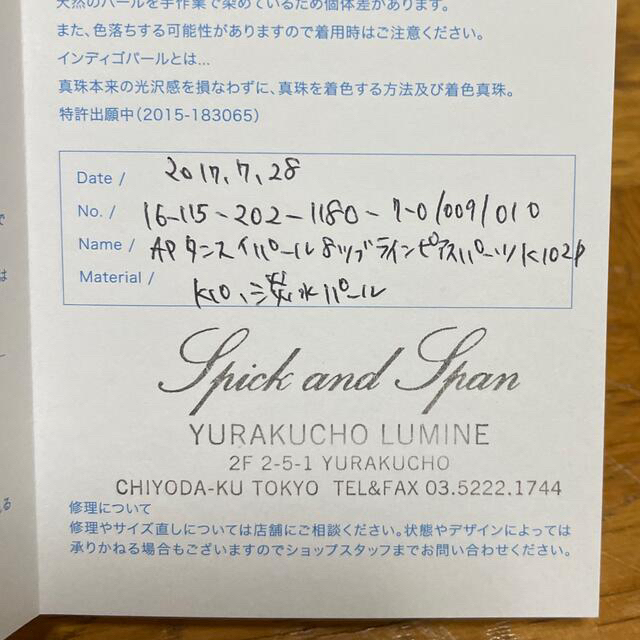 天然のパールを手作業で染めているため個体差があります。
また、色落ちする可能性がありますので着用時はご注意ください。
インディゴパールとは…
真珠本来の光沢感を損なわずに、真珠を着色する方法及び着色真珠。
特許出願中(2015-183065)
Date / 2017.7.28
No. / 16-115-202-1180-7-0/009/010
Name / APタンスイパール8ツブラインピアスパーツK102P
Material / K10、淡水パール
Spick and Span
YURAKUCHO LUMINE
2F 2-5-1 YURAKUCHO
CHIYODA-KU TOKYO TEL&FAX 03.5222.1744
修理について
修理やサイズ直しについては店舗にご相談ください。状態やデザインによっては
承りかねる場合もございますのでショップスタッフまでお問い合わせください。